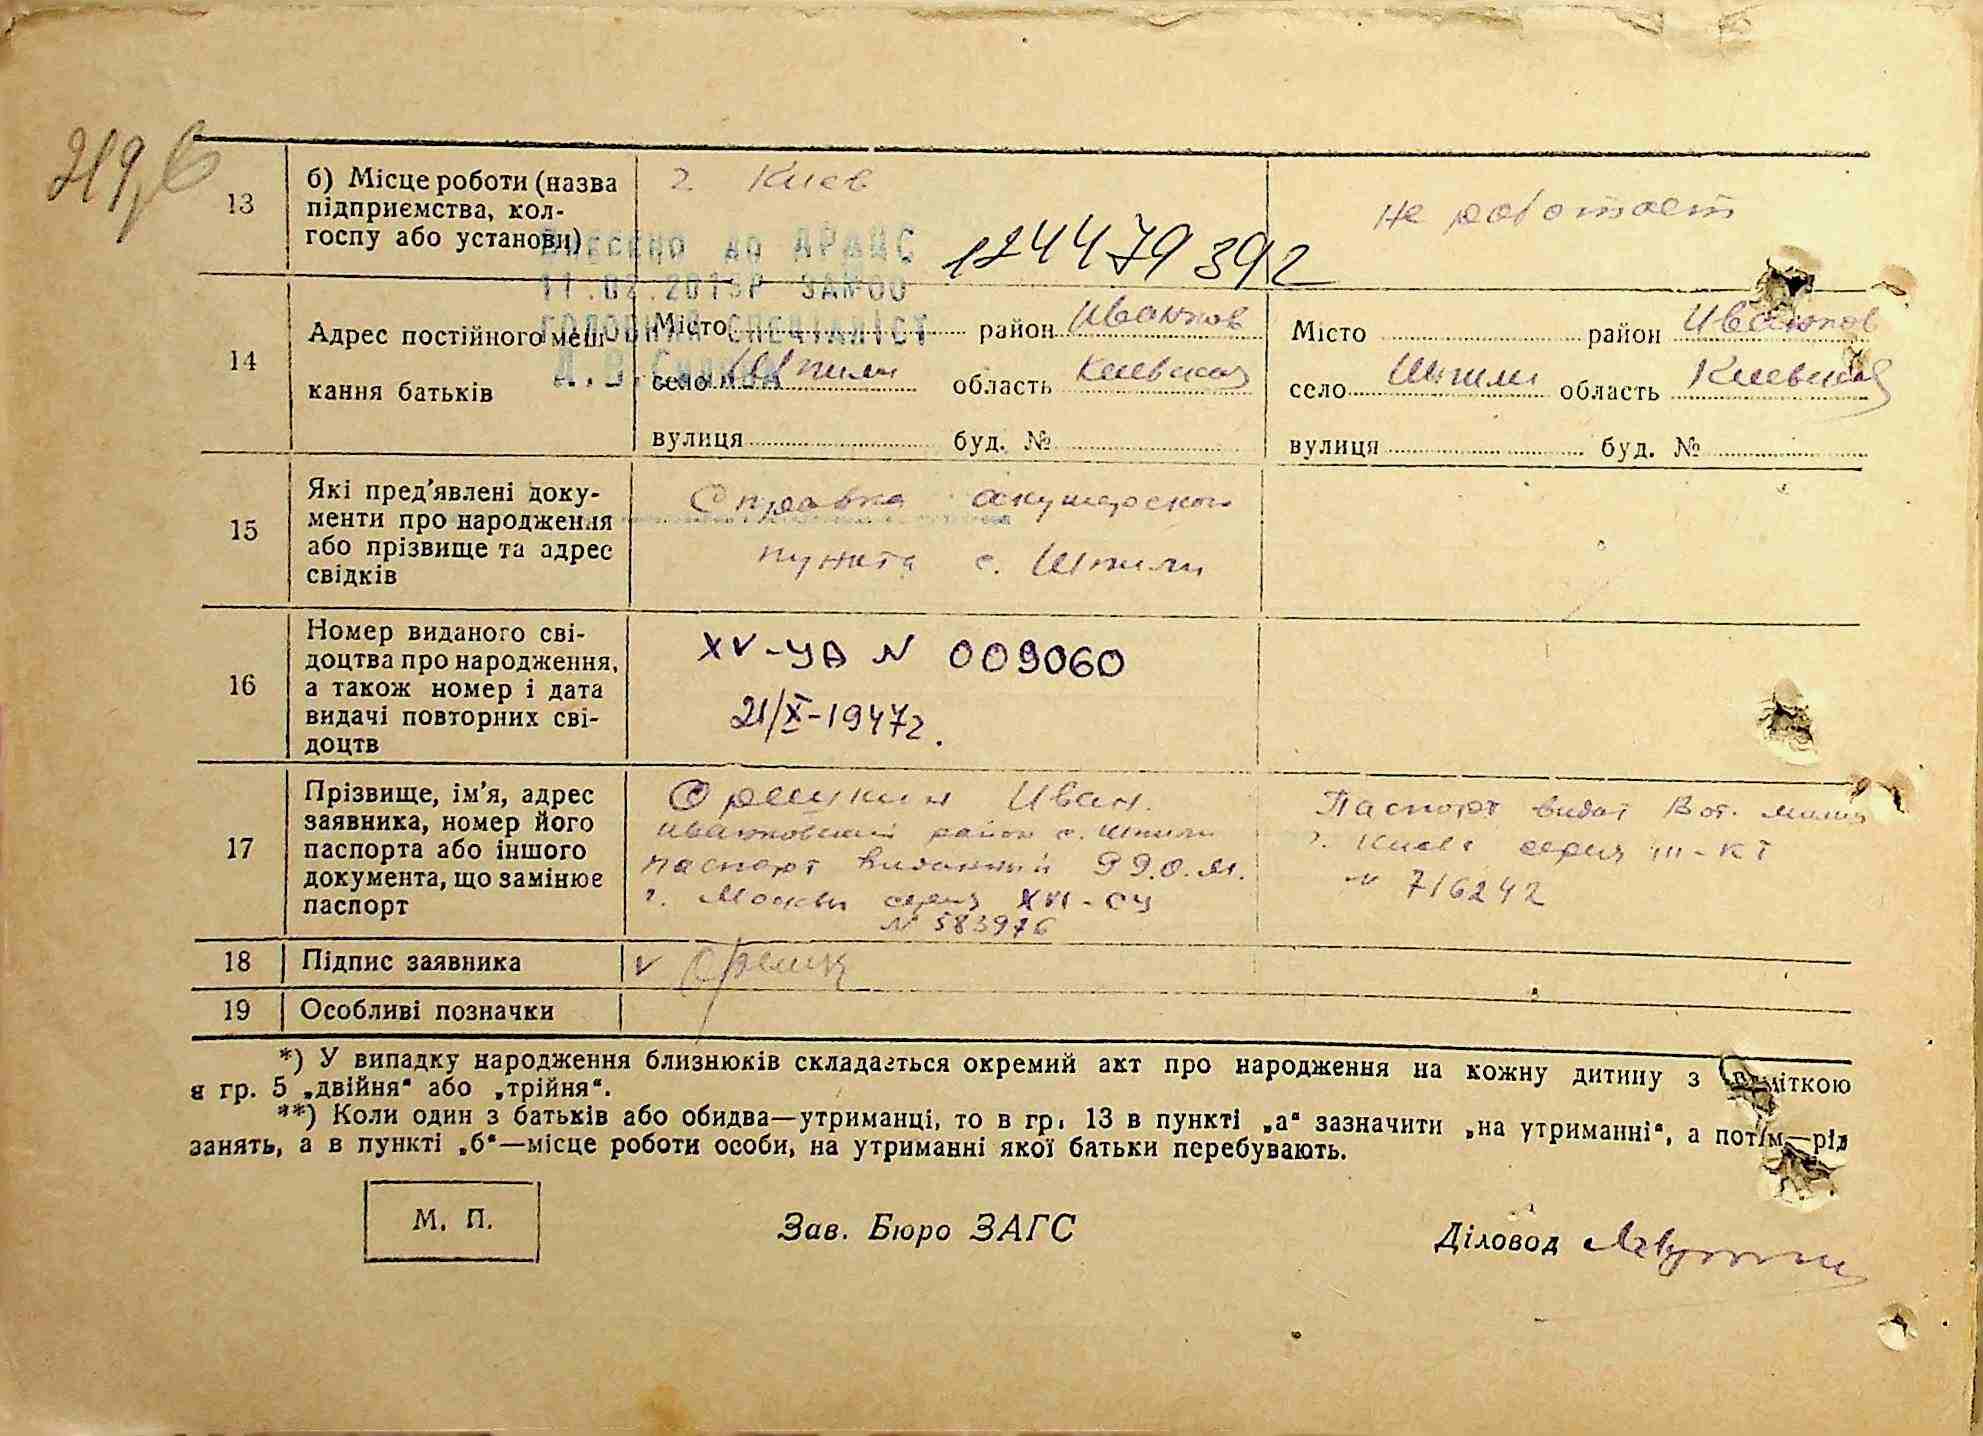 219,б
13
б) Місце роботи (назва
підприємства, кол-
госпу або установи)
г Киев
не работает
124479392
Внесено до ДРАЦС
ГОЛОВНИЙ СПЕЦІАЛІСТ
14
Адрес постійного меш-
кання батьків
Місто район Иванков
село Шпили область Киевская
вулиця буд. №
Місто район Иванков
село Шпили область Киевская
вулиця буд. №
15
Які пред'явлені доку-
менти про народження
або прізвище та адрес
свідків
Справка акушерского
пункта с. Шпили
16
Номер виданого сві-
доцтва про народження,
а також номер і дата
видачі повторних сві-
доцтв
XV-УА N 009060
21/X-1947г.
17
Прізвище, ім'я, адрес
заявника, номер його
паспорта або іншого
документа, що замінює
паспорт
Орешкин Иван.
Иванковский район с. Шпили
паспорт виданный 99.О.М.
г. Москвы серия XVI-СЦ
N 583976
Паспорт видат В от. милиц
г. Киева серия III-КТ
N 716242
18
Підпис заявника
v
19
Особливі позначки
*) У випадку народження близнюків складається окремий акт про народження на кожну дитину з поміткою
в гр. 5 „двійня“ або „трійня“.
**) Коли один з батьків або обидва—утриманці, то в гр. 13 в пункті „а“ зазначити „на утриманні“, а потім—рід
занять, а в пункті „б“—місце роботи особи, на утриманні якої батьки перебувають.
М. П.
Зав. Бюро ЗАГС
Діловод